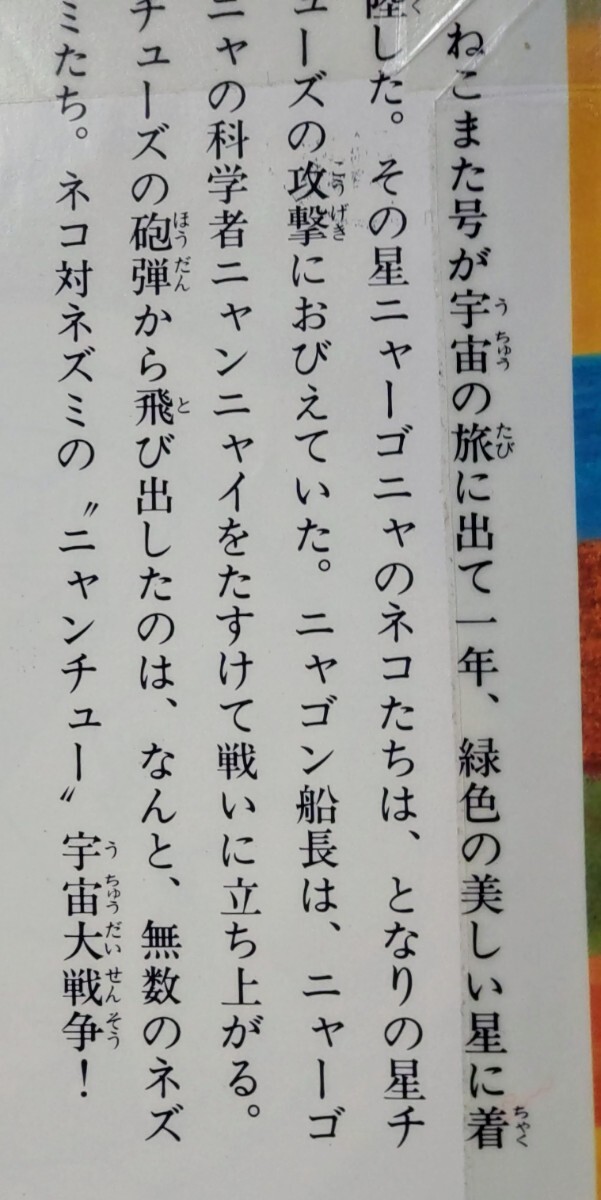 ねこまた号が宇宙の旅に出て一年、緑色の美しい星に着
陸した。その星ニャーゴニャのネコたちは、となりの星チ
ューズの攻撃におびえていた。ニャゴン船長は、ニャーゴ
ニャの科学者ニャンニャイをたすけて戦いに立ち上がる。
チューズの砲弾から飛び出したのは、なんと、無数のネズ
ミたち。ネコ対ネズミの〝ニャンチュー〟宇宙大戦争！